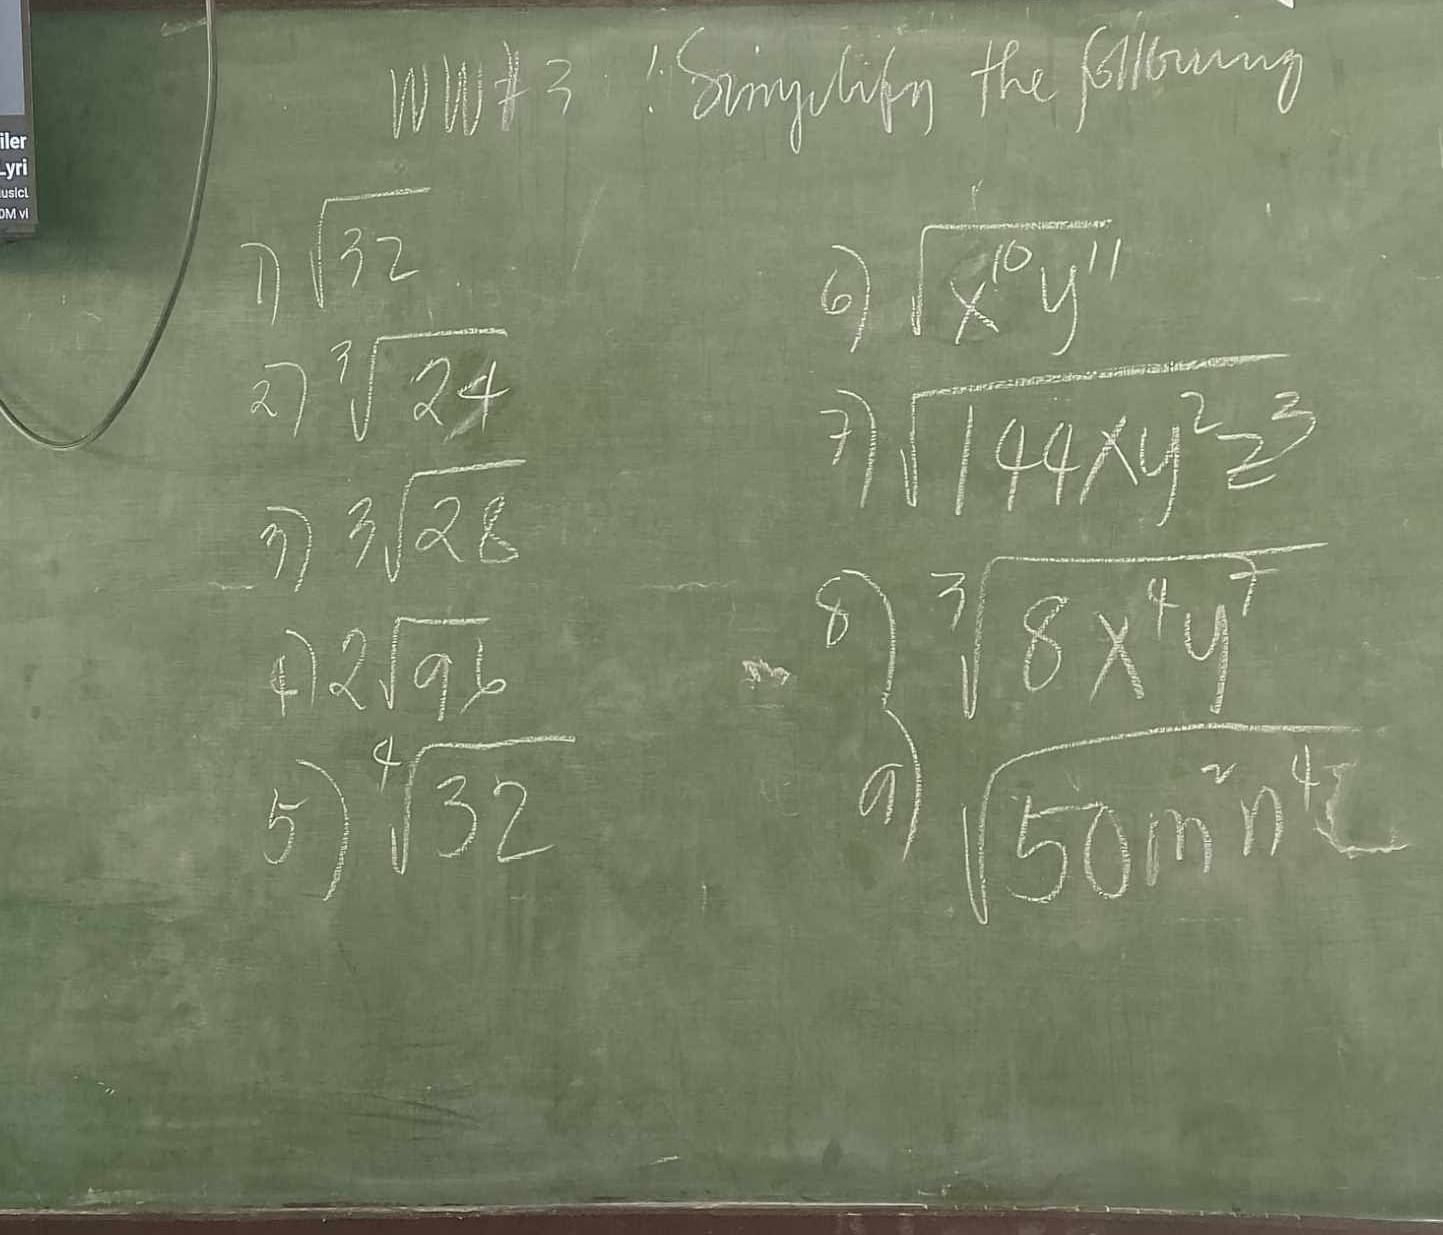 iler
Lyri
usicl
OM vi
WW#3 : Simplify the following
1) √32
2) ³√24
3) 3√28
4) 2√96
5) ⁴√32
6) √x¹⁰y¹¹
7) √144xy²z³
8) ³√8x⁴y⁷
9) √50m²n⁴